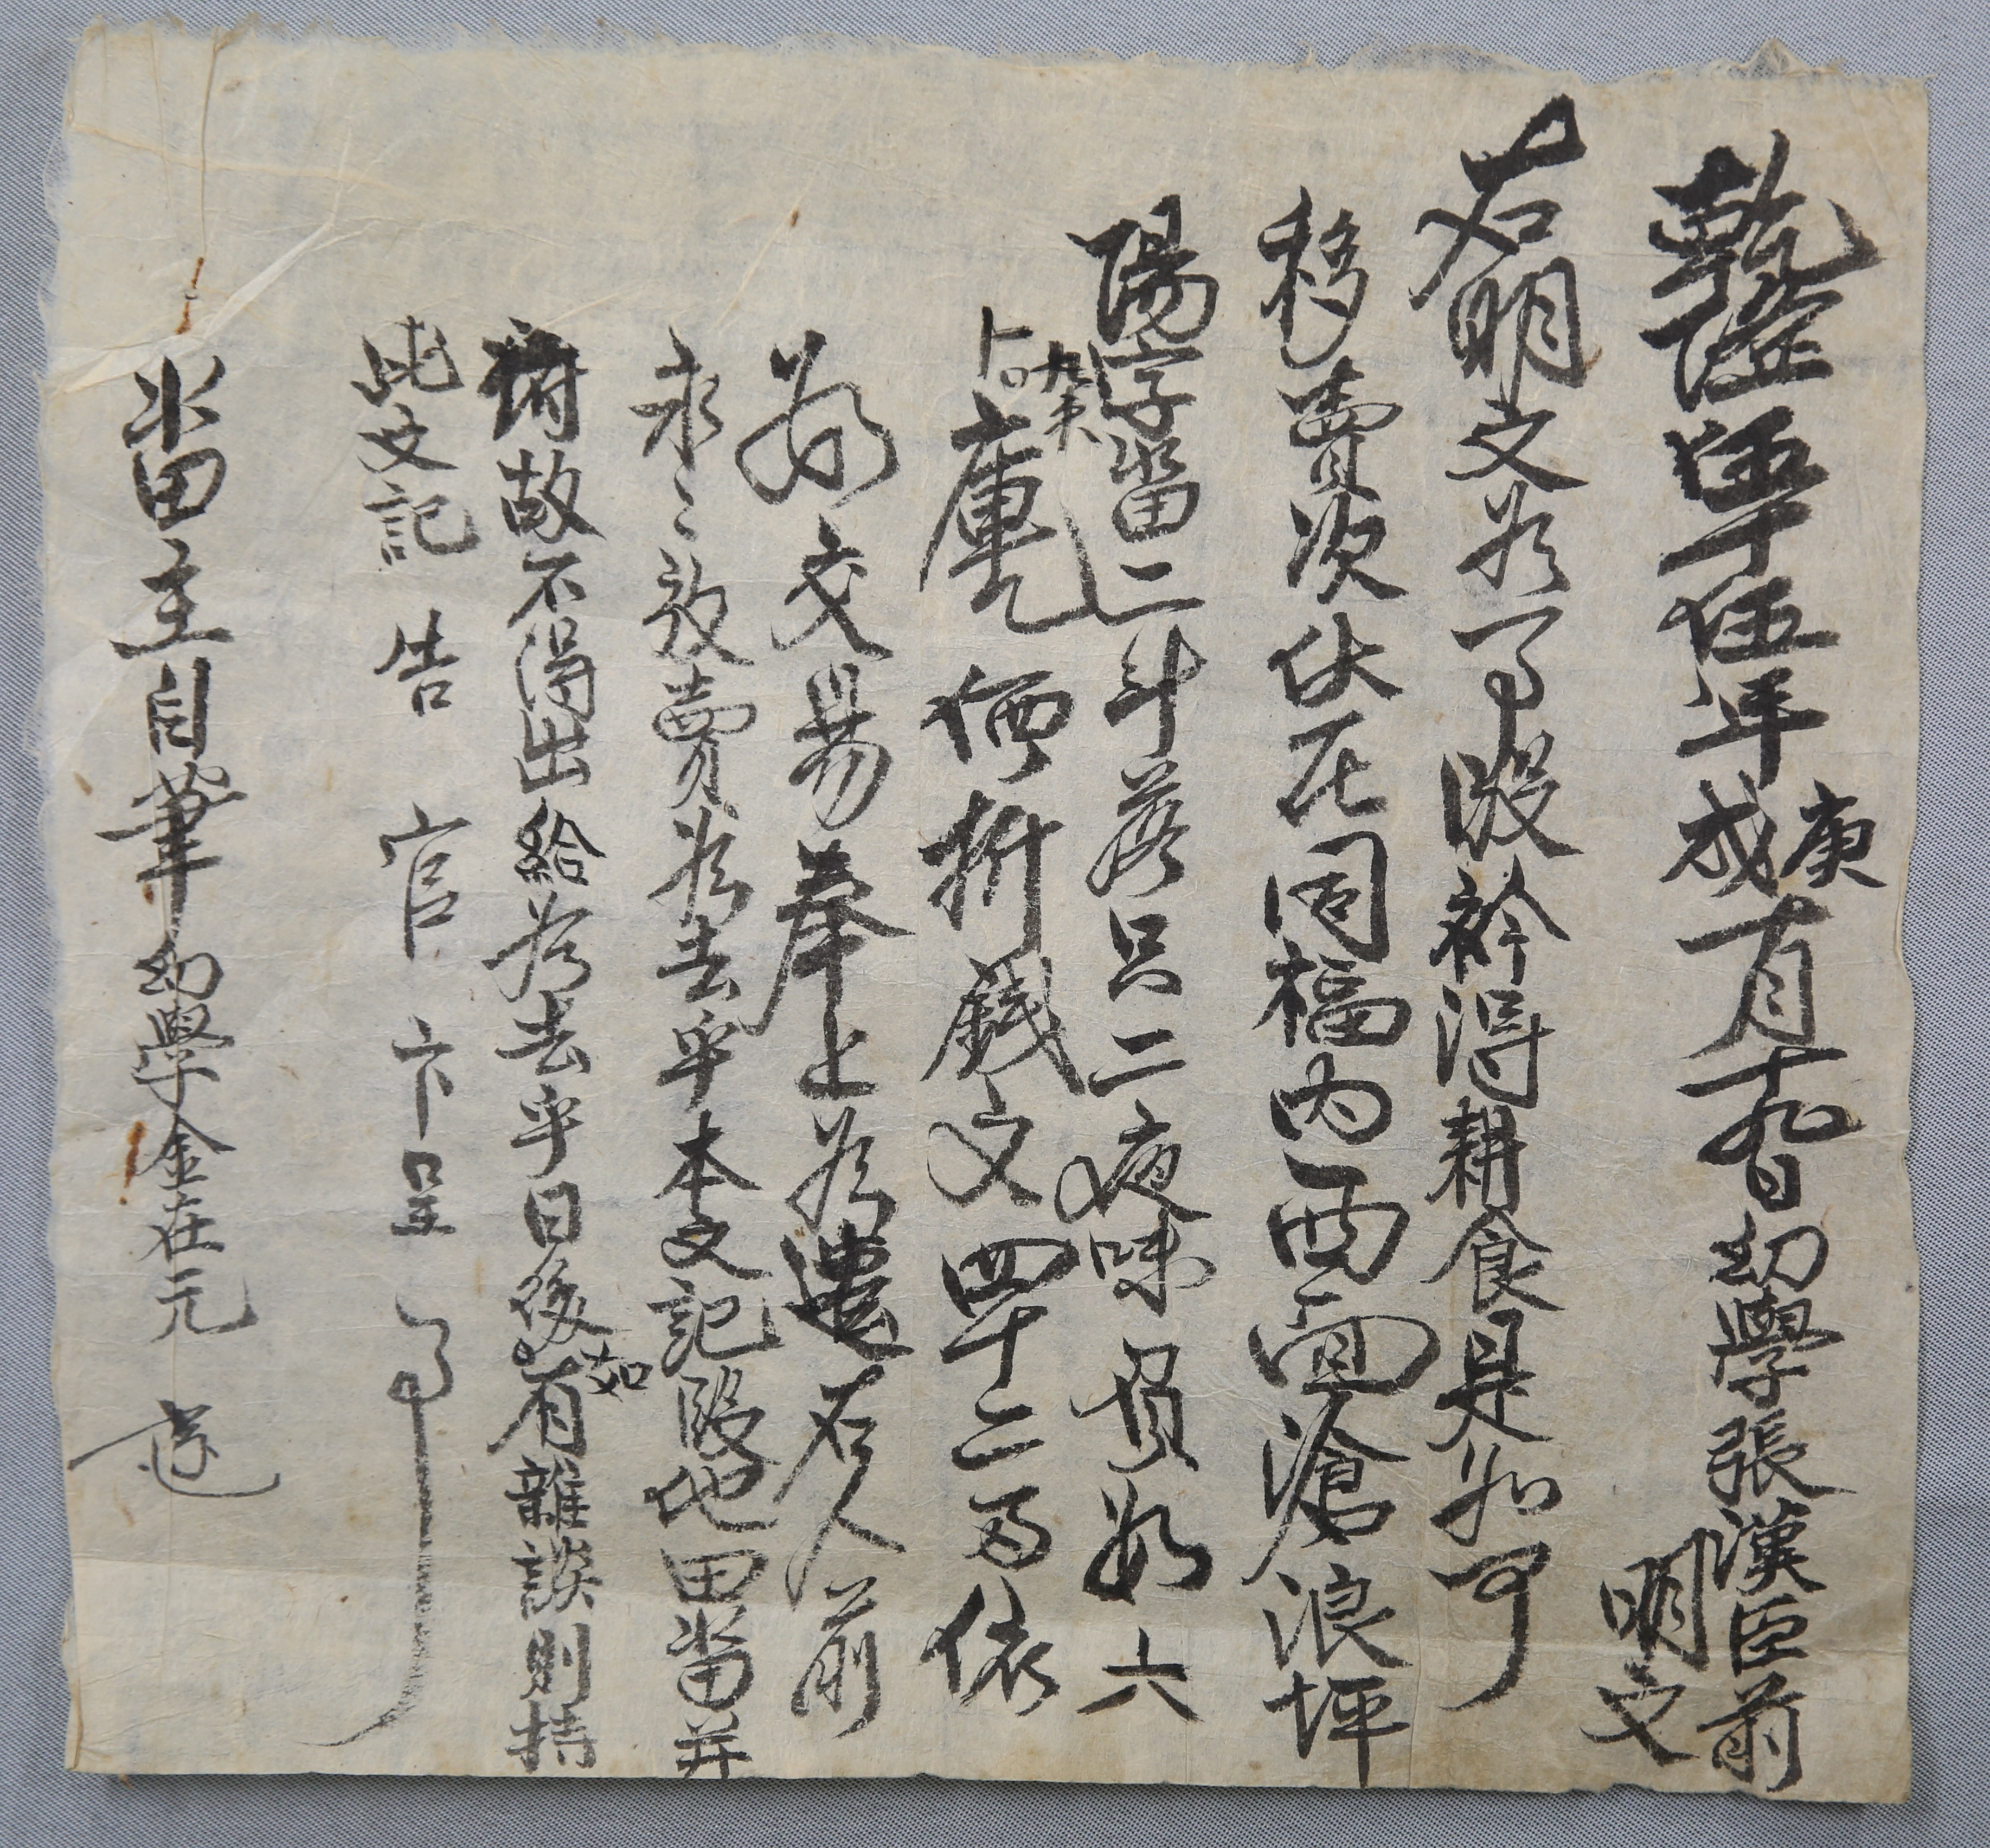 乾隆伍十伍年庚戌十月十九日幼學張漢臣前
明文
右明文爲臥乎事段衿得耕食是如可
移賣次伏在同福內西面滄浪坪
陽字畓二斗落只二夜味負數六
卜九束㐣庫乙価折錢文四十二兩依
數交易捧上爲遣右人前
永〻放賣爲去乎本文記段他田畓并
付故不得出給爲去乎日後如有雜談則持
此文記告官卞呈事
畓主自筆幼學金在元